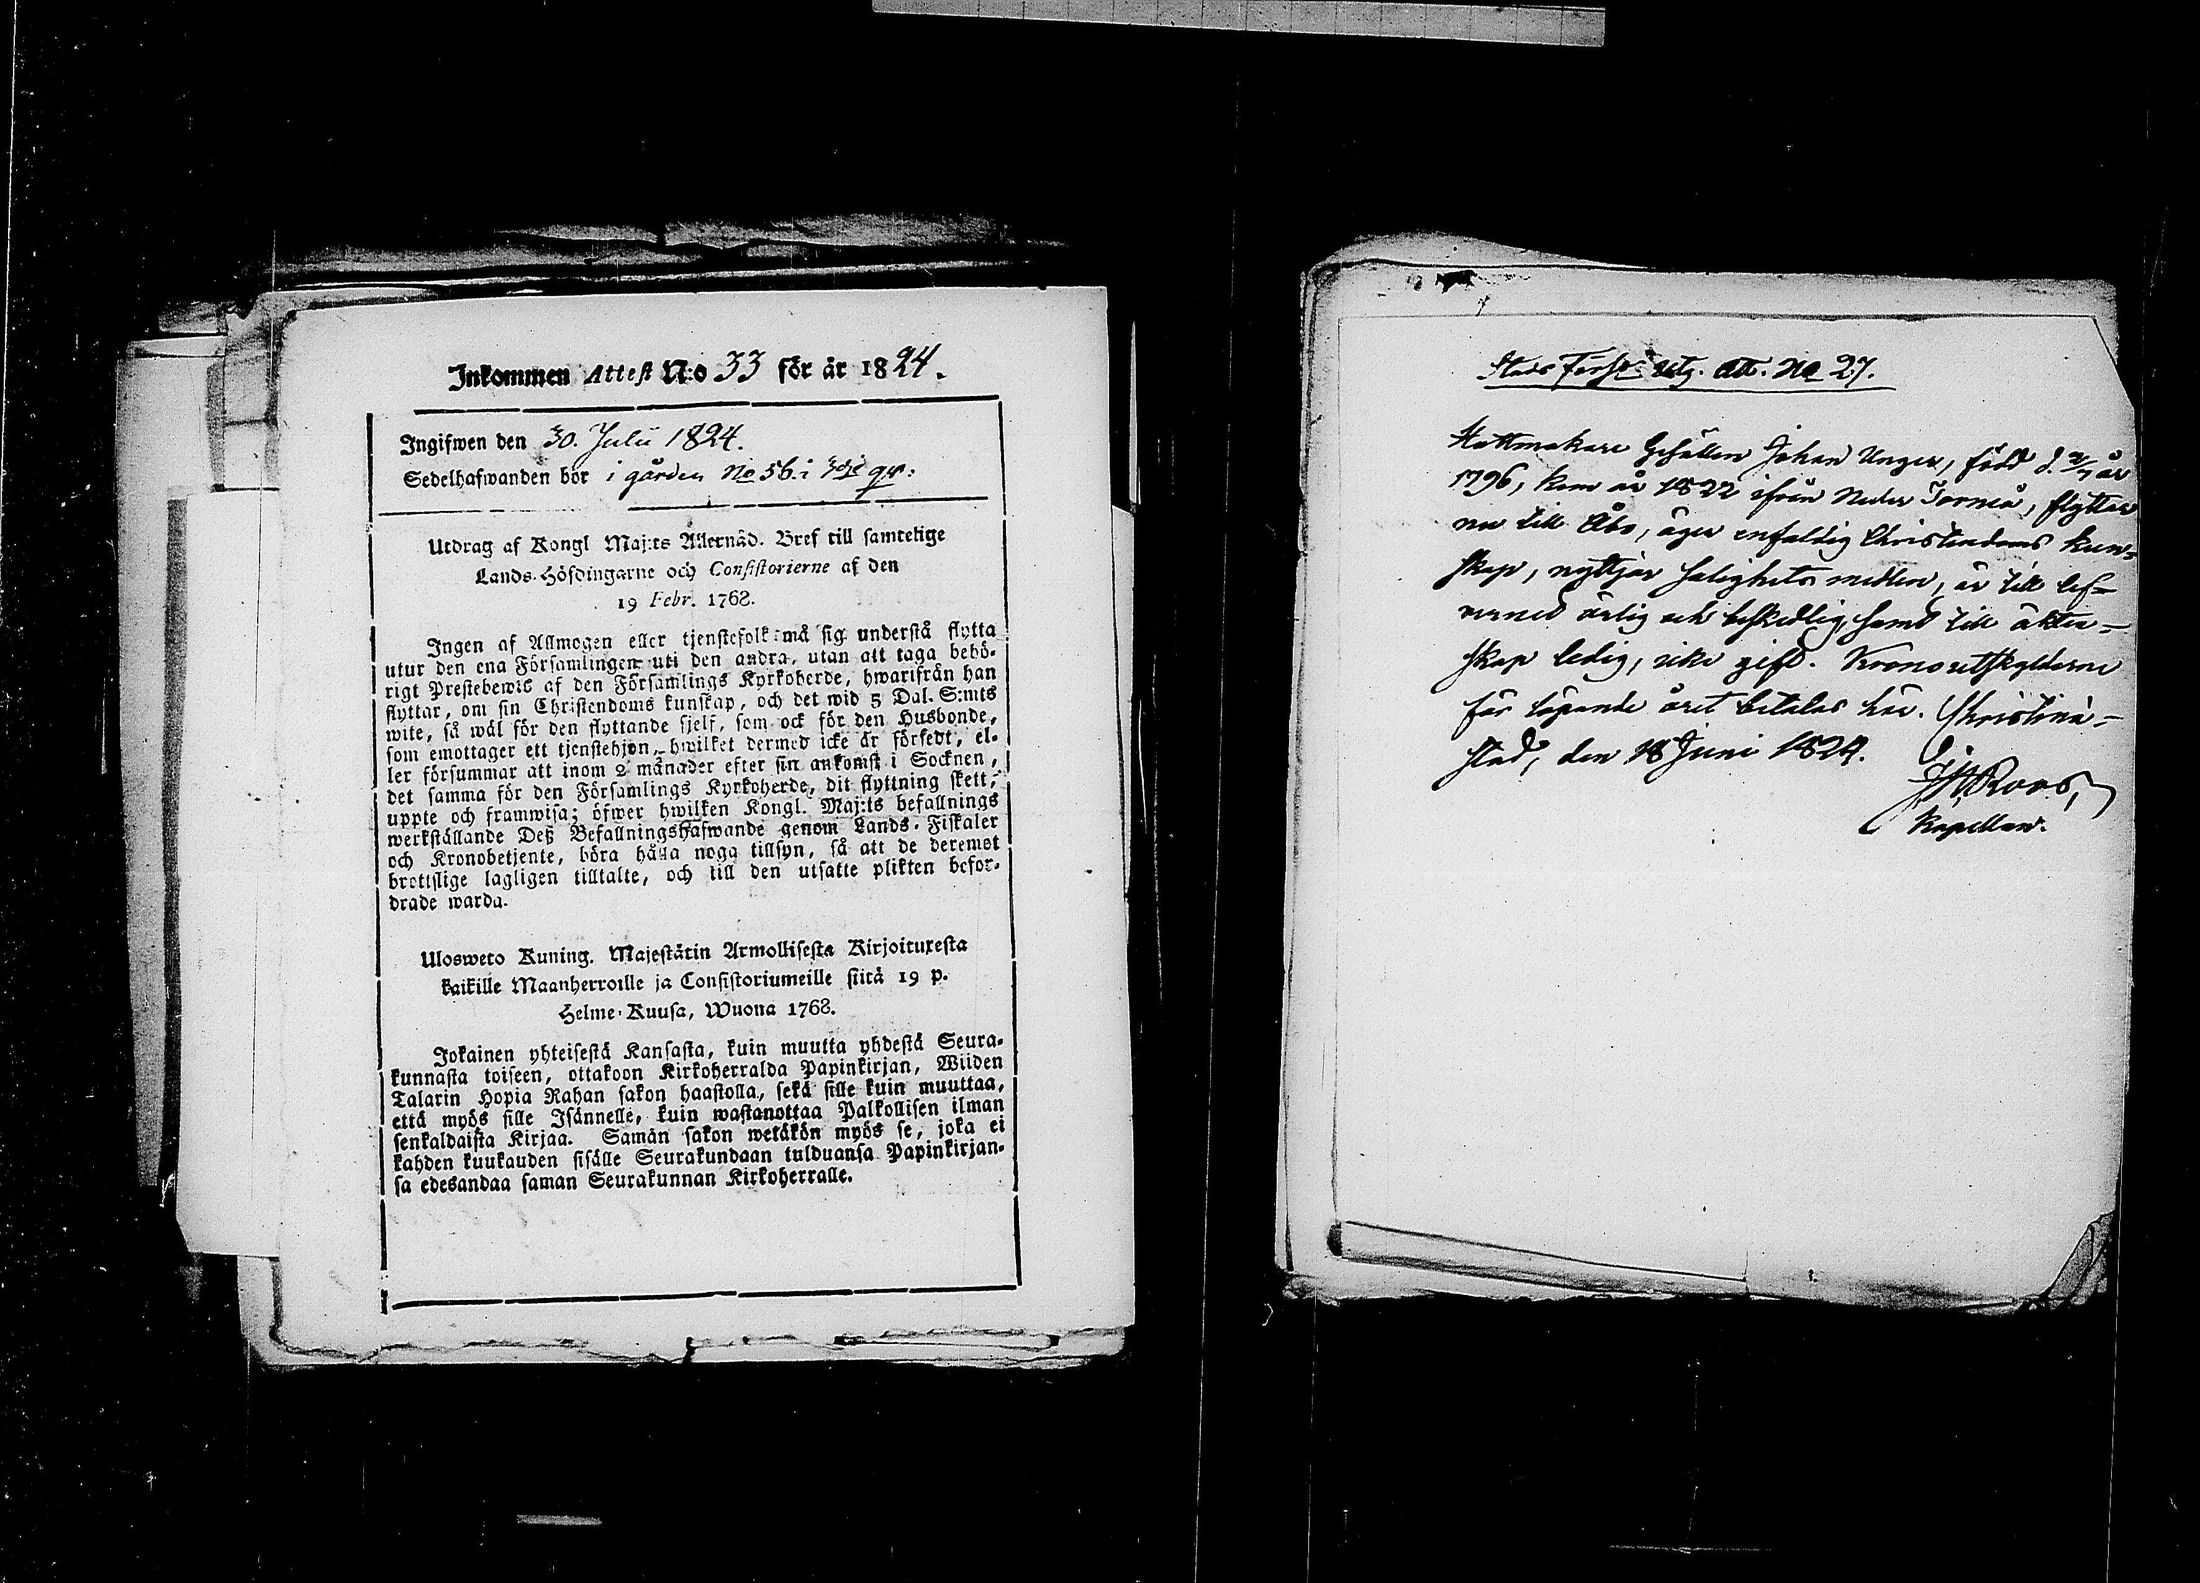 Inkommen Attest N:o 33 för år 1824.
Ingifwen den 30. Julii 1824.
Sedelhafwanden bor i gården No 56. i qv:
Utdrag af Kongl Maj:ts Allernåd. Bref till samtelige
Lands-Höfdingarne och Consistorierne af den
19 Febr. 1768.
Ingen af Allmogen eller tjenstefolk må sig understå flytta
utur den ena Församlingen uti den andra, utan att taga behö-
rigt Prestebewis af den Församlings Kyrkoherde, hwarifrån han
flyttar, om sin Christendoms kunskap, och det wid 5 Dal. S:mts
wite, så wäl för den flyttande sjelf, som ock för den Husbonde,
som emottager ett tjenstehjon, hwilket dermed icke är försedt, el-
ler försummar att inom 2 månader efter sin ankomst i Socknen,
det samma för den Församlings Kyrkoherde, dit flyttning skett,
uppte och framwisa; öfwer hwilken Kongl. Maj:ts befallnings
werkställande Deß Befallningshafwande genom Lands-Fiskaler
och Kronobetjente, böra hålla noga tillsyn, så att de deremot
brottslige lagligen tilltalte, och till den utsatte plikten befor-
drade warda.
Ulosweto Kuning. Majestätin Armollisesta Kirjoituxesta
kaikille Maanherroille ja Consistoriumeille siitä 19 p.
Helme-Kuusa, Wuona 1768.
Jokainen yhteisestä Kansasta, kuin muutta yhdestä Seura-
kunnasta toiseen, ottakoon Kirkoherralda Papinkirjan, Wiiden
Talarin Hopia Rahan sakon haastolla, sekä sille kuin muuttaa,
että myös sille Isännelle, kuin wastanottaa Palkollisen ilman
senkaldaista Kirjaa. Saman sakon wetäkön myös se, joka ei
kahden kuukauden sisälle Seurakundaan tulduansa Papinkirjan-
sa edesandaa saman Seurakunnan Kirkoherralle.
Stads Förs:s Utg. Att. No 27.
Hattmakare Gesällen Johan Unger, född d. år
1796, kom år 1822 ifrån Neder Torneå, flyttar
nu till Åbo, äger enfaldig Christendoms kun-
skap, nyttjar salighets medlen, är till lef-
verned ärlig och beskedlig samt till äkten-
skap ledig, icke gift. Kronoutskylderne
för löpande året betalas här. Christina-
stad, den 18 Juni 1824.
Roos,
Kapellan.